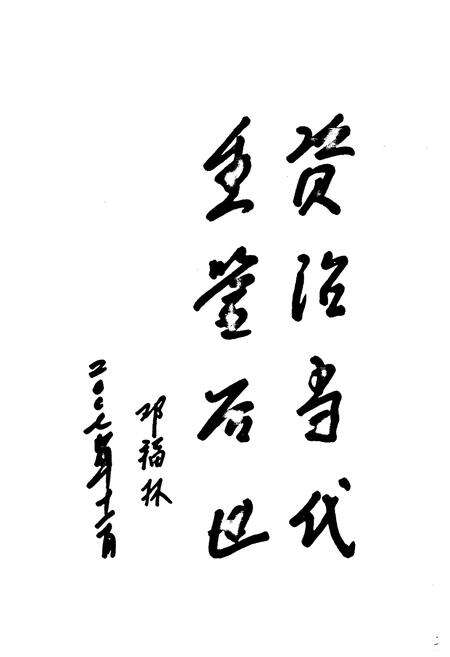 资治当代
垂鉴后世
邓福林
二〇〇七年十一月